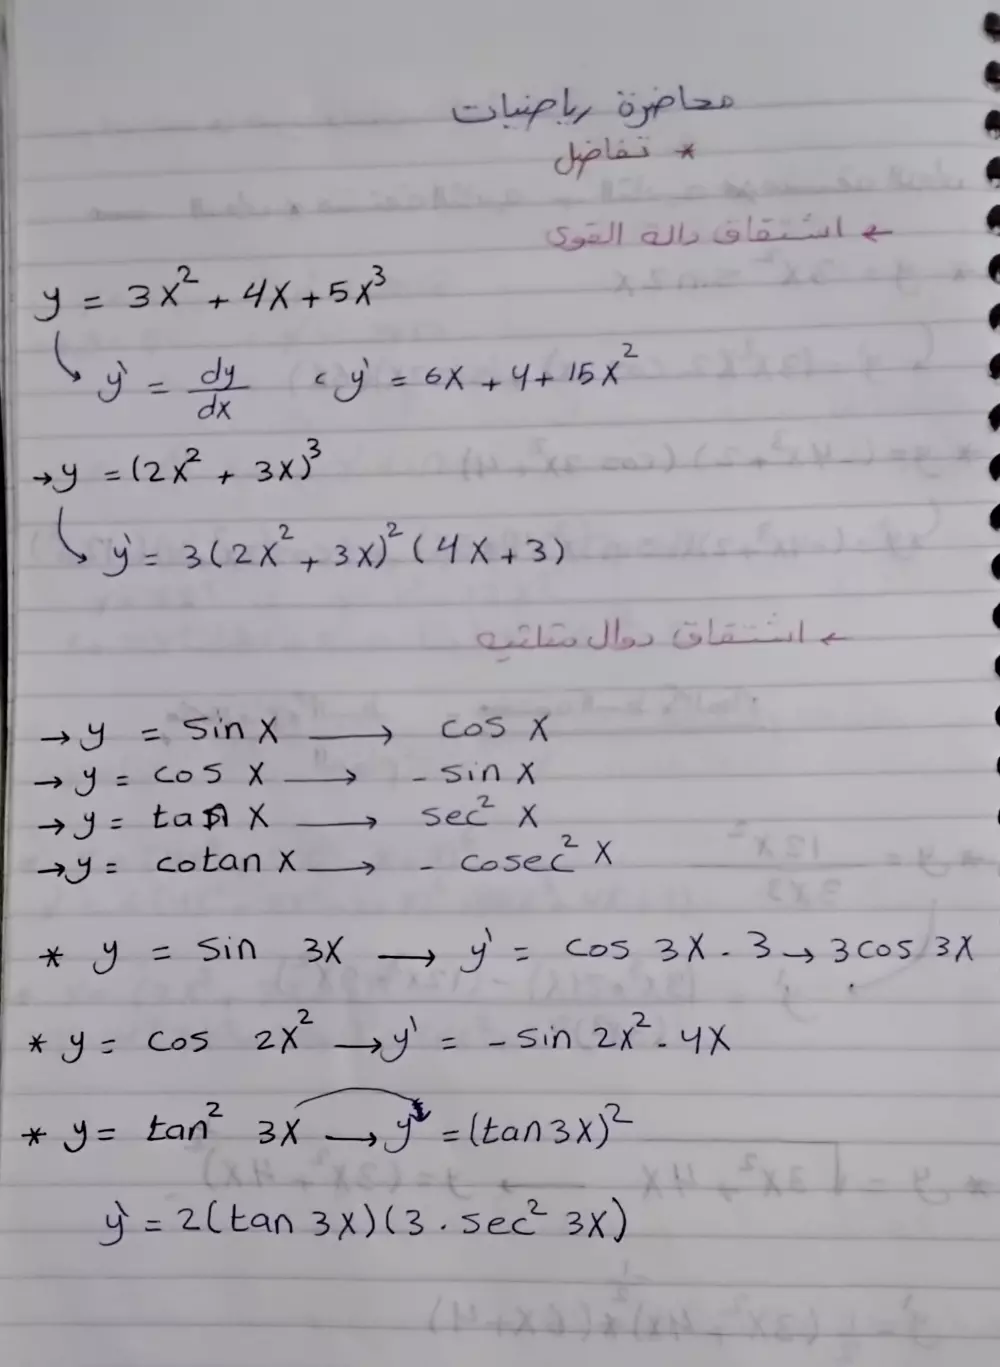 محاضرة رياضيات
* تفاضل
← اشتقاق دالة القوى
y = 3x² + 4x + 5x³
y' = dy/dx ، y' = 6x + 4 + 15x²
→ y = (2x² + 3x)³
y' = 3(2x² + 3x)² (4x + 3)
← اشتقاق دوال مثلثيه
→ y = sin x ⟶ cos x
→ y = cos x ⟶ - sin x
→ y = tan x ⟶ sec² x
→ y = cotan x ⟶ - cosec² x
* y = sin 3x ⟶ y' = cos 3x . 3 → 3 cos 3x
* y = cos 2x² ⟶ y' = - sin 2x² . 4x
* y = tan² 3x ⟶ y = (tan 3x)²
y' = 2(tan 3x)(3 . sec² 3x)